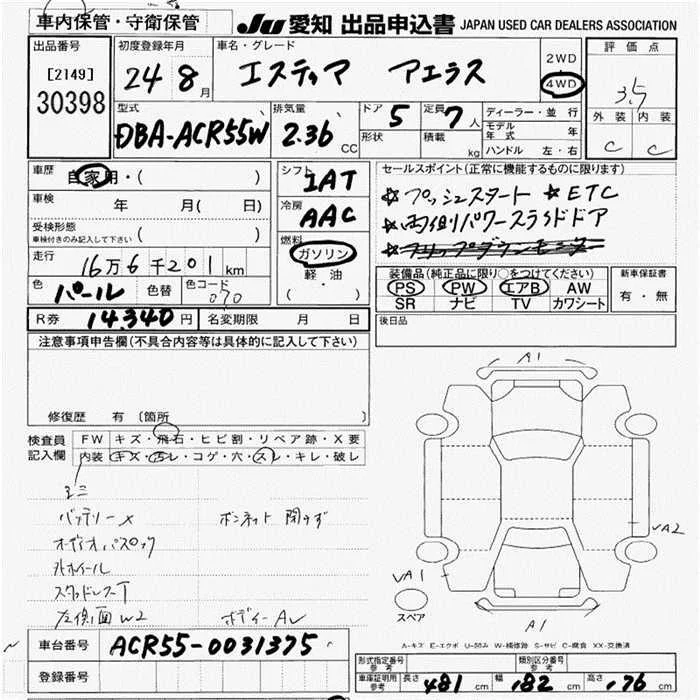 車内保管・守衛保管 JU 愛知 出品申込書 JAPAN USED CAR DEALERS ASSOCIATION
出品番号 [2149] 30398
初度登録年月 24年 8月
車名・グレード エスティマ アエラス
2WD 4WD
評価点 3.5
外装 C 内装 C
型式 DBA-ACR55W
排気量 2.36 CC
ドア 5 形状
定員 7人 積載 kg
ディーラー・並行
モデル年式 年
ハンドル 左・右
車歴 自家用・( )
車検 年 月( 日)
受検形態 ( )
車検付きのみ記入して下さい
走行 16万6千201km
色 パール 色替 色コード 070
シフト IAT
冷房 AAC
燃料 ガソリン
軽・油
( )
セールスポイント(正常に機能するものに限ります)
☆プッシュスタート ☆ETC
☆両側パワースライドドア
装備品(純正品に限り○をつけてください)
PS PW エアB AW
SR ナビ TV カワシート
新車保証書 有・無
R券 14,340円 名変期限 月 日
後日品
注意事項申告欄(不具合内容等は具体的に記入して下さい)
修復歴 有 〔箇所 〕
検査員記入欄 FW キズ・飛石・ヒビ割・リペア跡・X要
内装 キズ・汚レ・コゲ・穴・スレ・キレ・破レ
バッテリーX ボンネット 閉らず
外ホイール
左側面W2 ボディーAU
A1
VA2
VA1
スペア
A1
A-キズ E-エクボ U-凹み W-補修跡 S-サビ C-腐食 XX-交換済
車台番号 ACR55-0031375
登録番号
形式指定番号 参考 類別区分番号 参考
車庫証明用 参考 長さ 481 幅 182 高さ 176